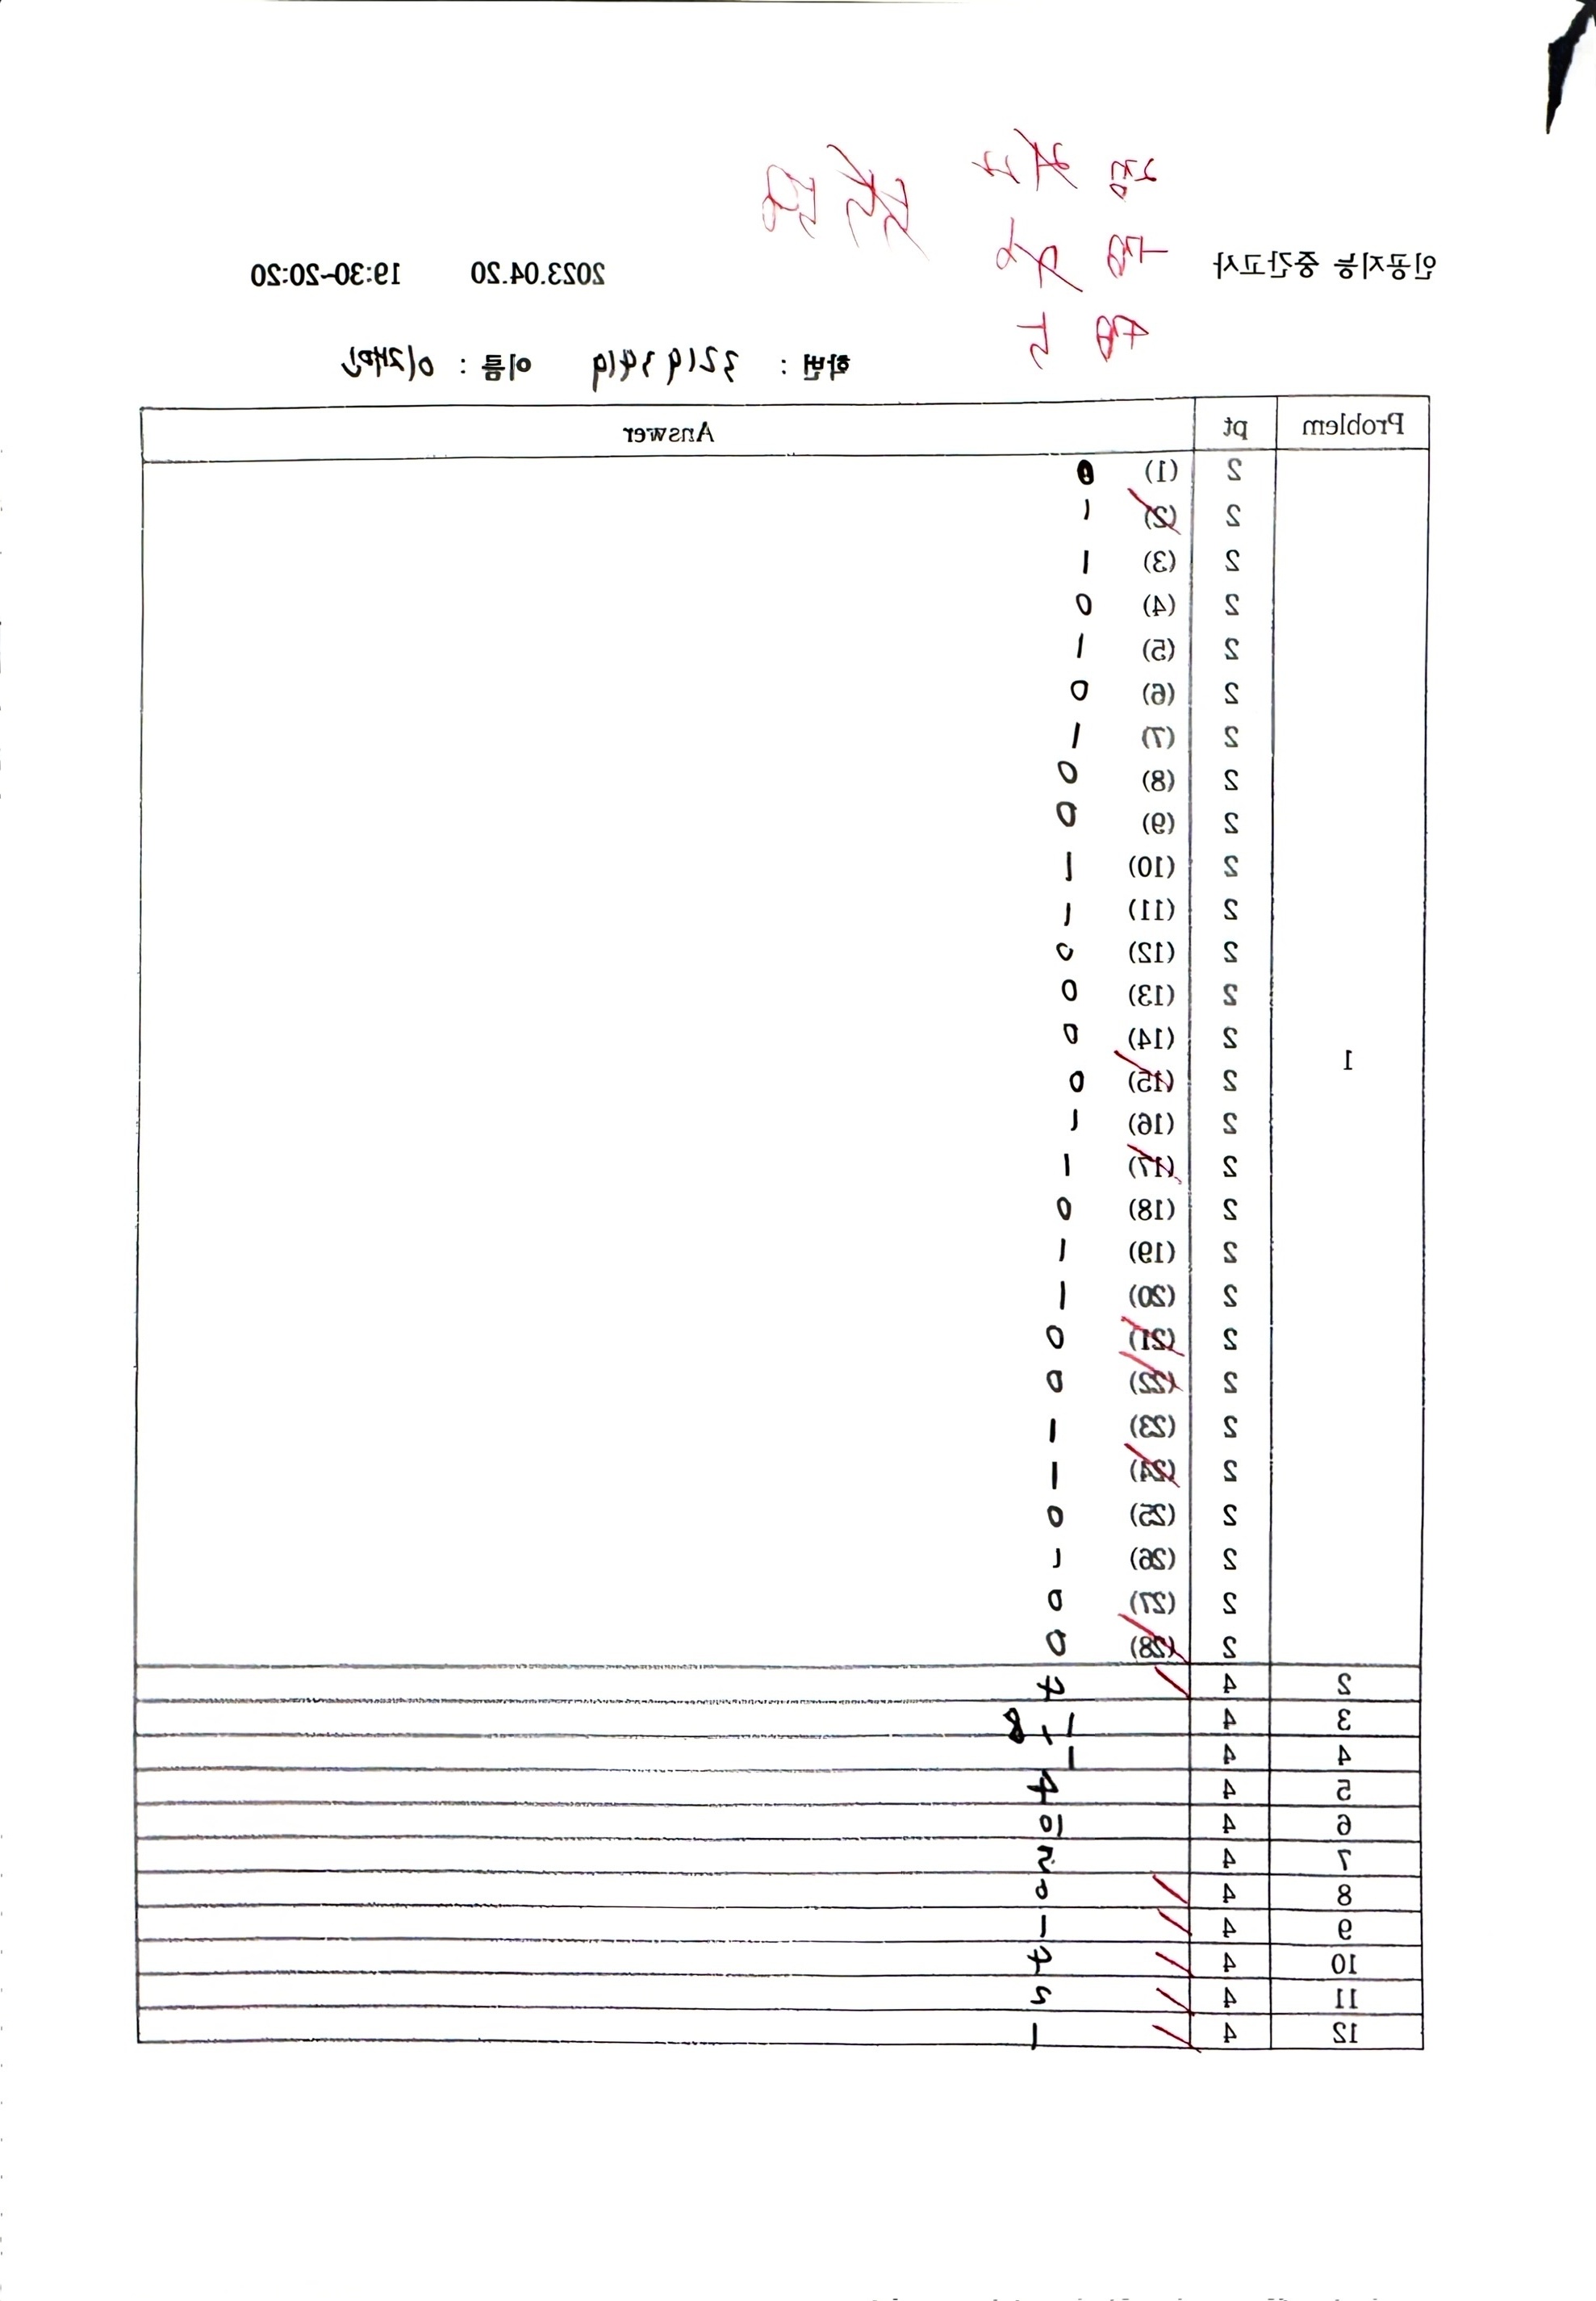 인공지능 중간고사 2023.04.20 19:30-20:20
학번 : 32193419 이름 : 이재민
Problem pt Answer
1
2 (1) 0
2 (2) 1
2 (3) 1
2 (4) 0
2 (5) 1
2 (6) 0
2 (7) 1
2 (8) 0
2 (9) 0
2 (10) 1
2 (11) 1
2 (12) 0
2 (13) 0
2 (14) 0
2 (15) 0
2 (16) 1
2 (17) 1
2 (18) 0
2 (19) 1
2 (20) 1
2 (21) 0
2 (22) 0
2 (23) 1
2 (24) 1
2 (25) 0
2 (26) 1
2 (27) 0
2 (28) 0
2 4 7
3 4 1, 8
4 4 1
5 4 4
6 4 10
7 4 5
8 4 0
9 4 1
10 4 7
11 4
12 4 1